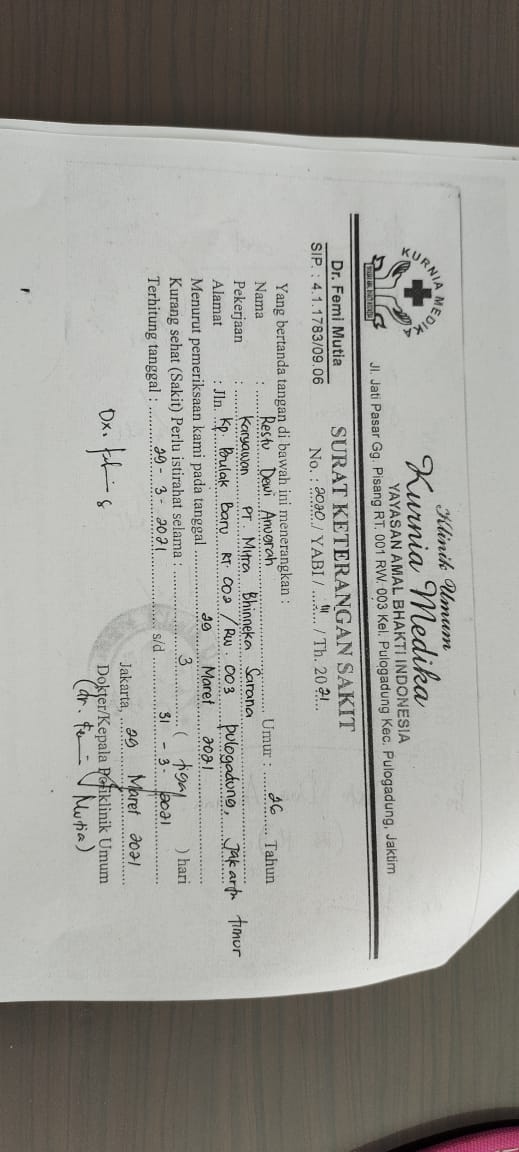 KURNIA MEDIKA
Klinik Umum
Kurnia Medika
YAYASAN AMAL BHAKTI INDONESIA
Jl. Jati Pasar Gg. Pisang RT. 001 RW. 003 Kel. Pulogadung Kec. Pulogadung, Jaktim
Dr. Femi Mutia
SIP. : 4.1.1783/09.06
SURAT KETERANGAN SAKIT
No. : 2020 / YABI / III / Th. 2021
Yang bertanda tangan di bawah ini menerangkan :
Nama : Restu Dewi Anugrah Umur : 26 Tahun
Pekerjaan : Karyawan PT. Mitra Bhinneka Sarana
Alamat : Jln. Kp. Bulak Baru RT 002 / RW 003 Pulogadung, Jakarta Timur
Menurut pemeriksaan kami pada tanggal 29 Maret 2021
Kurang sehat (Sakit) Perlu istirahat selama : 3 ( tiga ) hari
Terhitung tanggal : 29 - 3 - 2021 s/d 31 - 3 - 2021
Jakarta, 29 Maret 2021
Dokter/Kepala Poliklinik Umum
Dx.
(dr. Femi Mutia)